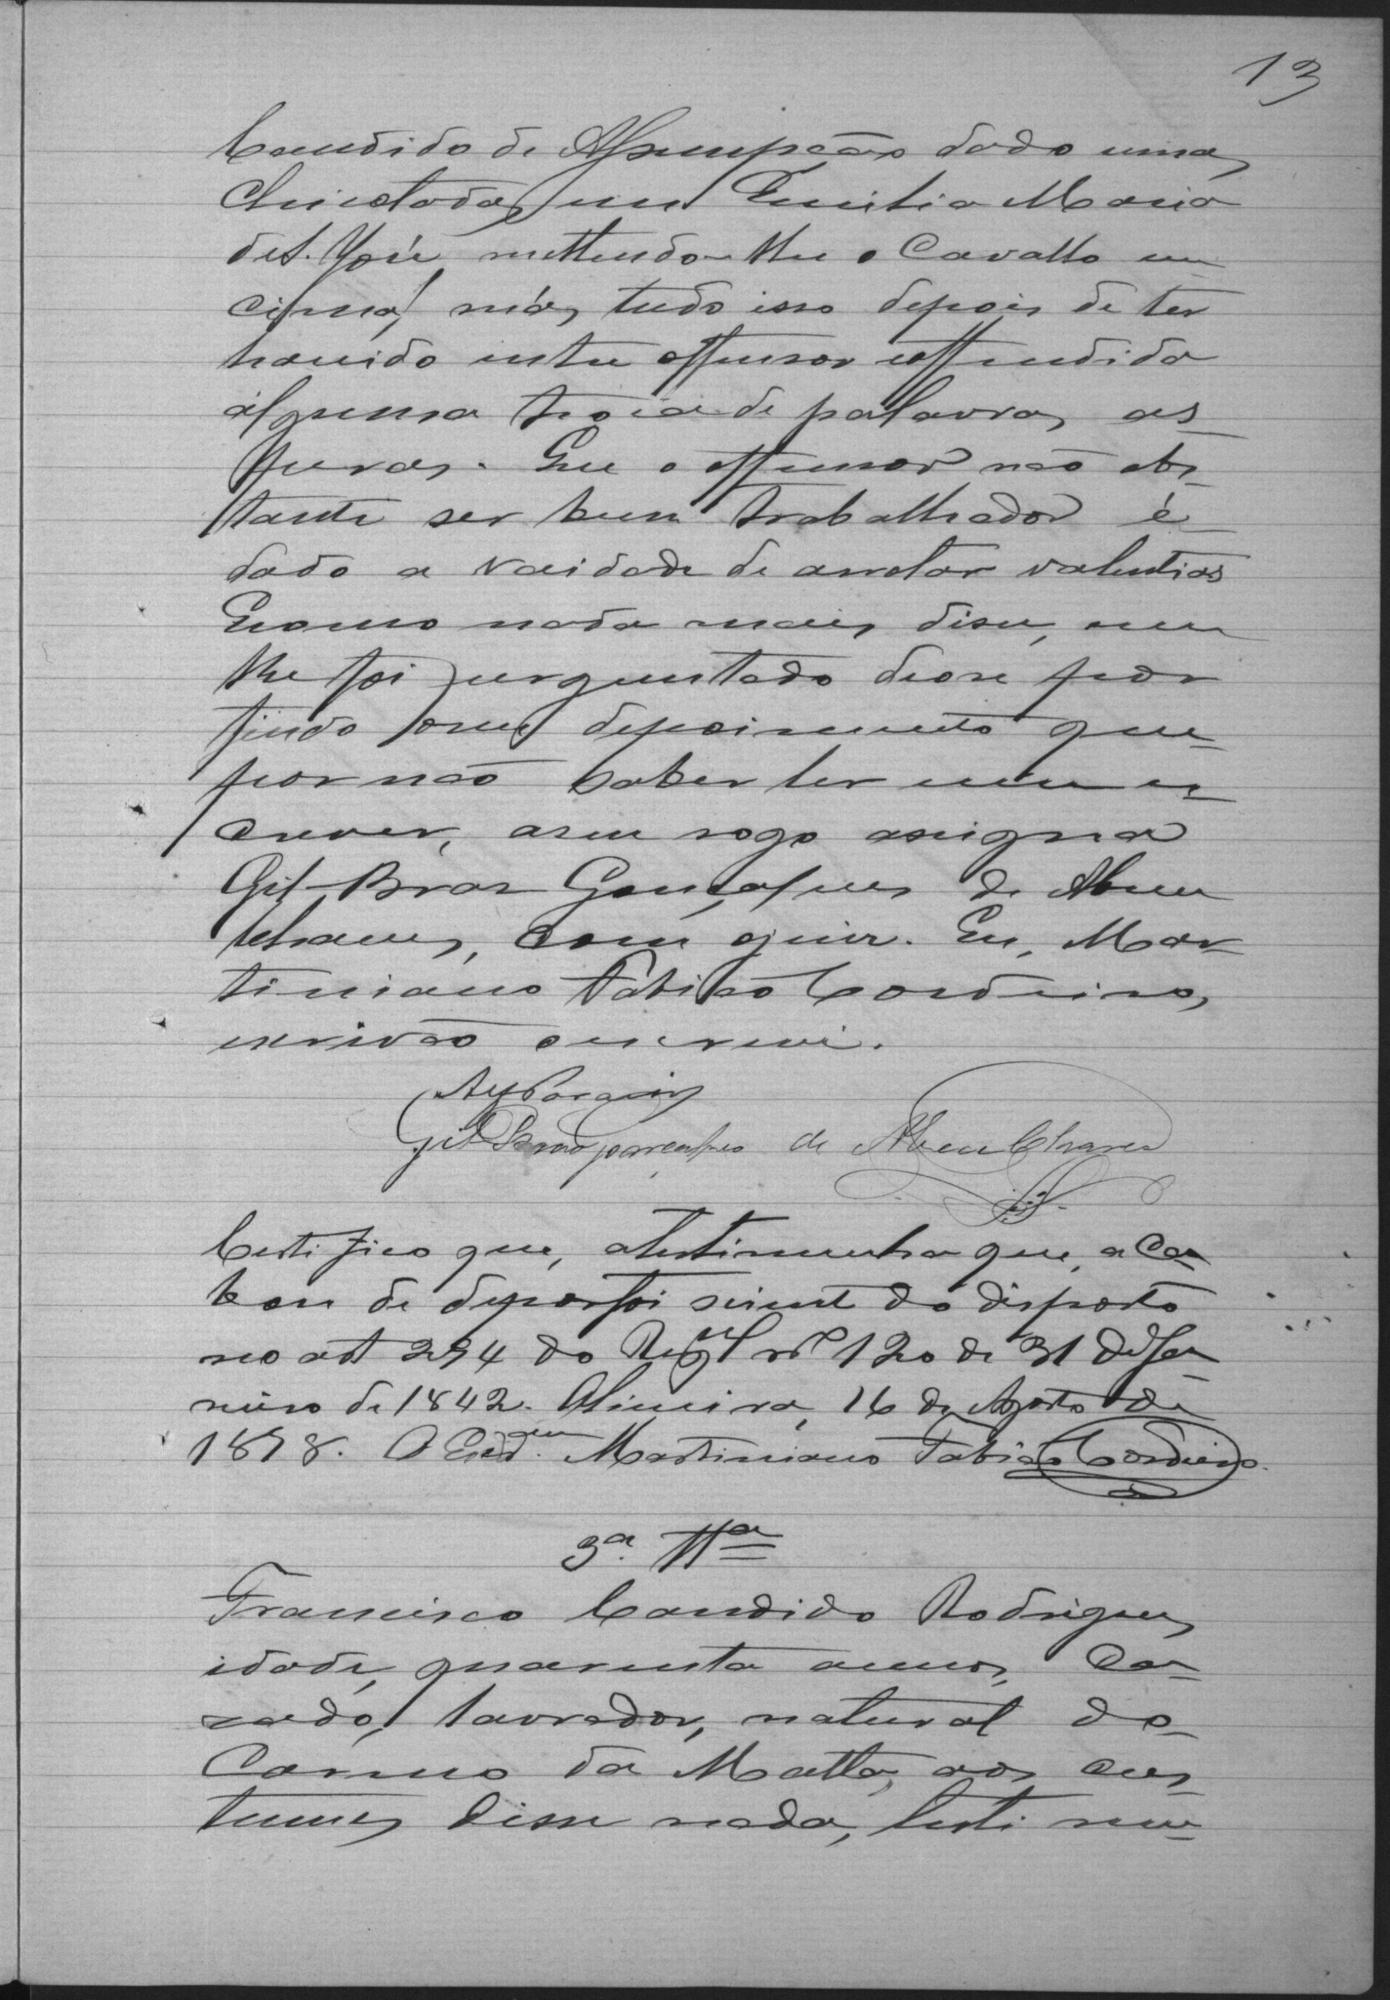 13
Candido de Assumpção dado uma
chicotada, em Emilia Maria
de S. José, mettendo-lhe o Cavallo em
cima, más, tudo isso depois de ter
havido entre offensor e offendida
alguma troca de palavras as-
peras. Que o offensor não obs-
tante ser bem trabalhador é
dado a vaidade de arrotar valentias
E como nada mais, disse, nem
lhe foi perguntado deo-se por
findo o seu depoimento que
por não saber ler nem es-
crever, a seu rogo assigna
Gil Braz Gonçalves de Abreu
Chaves, com o juiz. Eu, Mar-
tiniano Fabião Cordeiro,
escrivão o escrevi.
Gil Braz Gonçalves de Abreu Chaves
Certifico que, a testimunha que, aca-
bou de depor foi sciente do disposto
no art 294 do Regul nº 120 de 31 de Ja-
neiro de 1842. Alimeira, 16 de Agosto de
1898. O Escrm. Martiniano Fabião Cordeiro.
3ª Ttª
Francisco Candido Rodrigues,
idade, quarenta annos, Ca-
zado, lavrador, natural do
Carmo da Matta, aos cus-
tumes disse nada, testi mu-